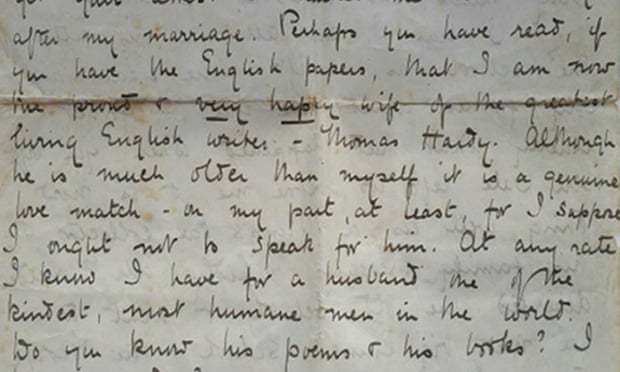 after my marriage. Perhaps you have read, if
you have the English papers, that I am now
the proud & very happy wife of the greatest
living English writer - Thomas Hardy. Although
he is much older than myself it is a genuine
love match - on my part, at least, for I suppose
I ought not to speak for him. At any rate
I know I have for a husband one of the
kindest, most humane men in the world.
Do you know his poems & his books? I